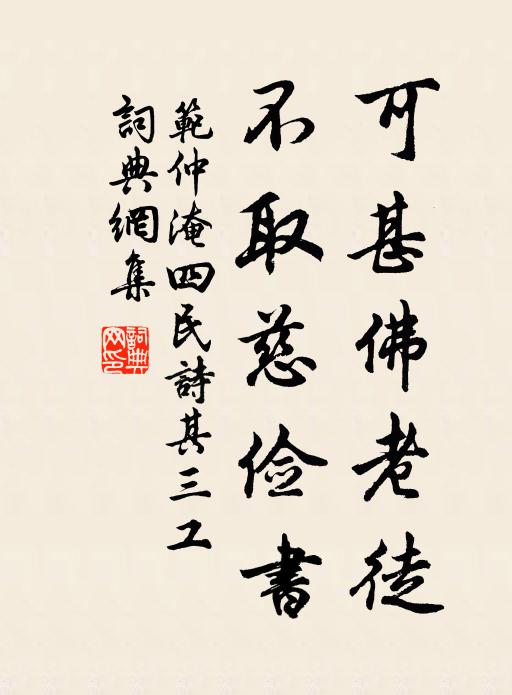 可甚佛老徒
不取慈俭書
範仲淹四民詩其三工
詞典網集
詞典网印